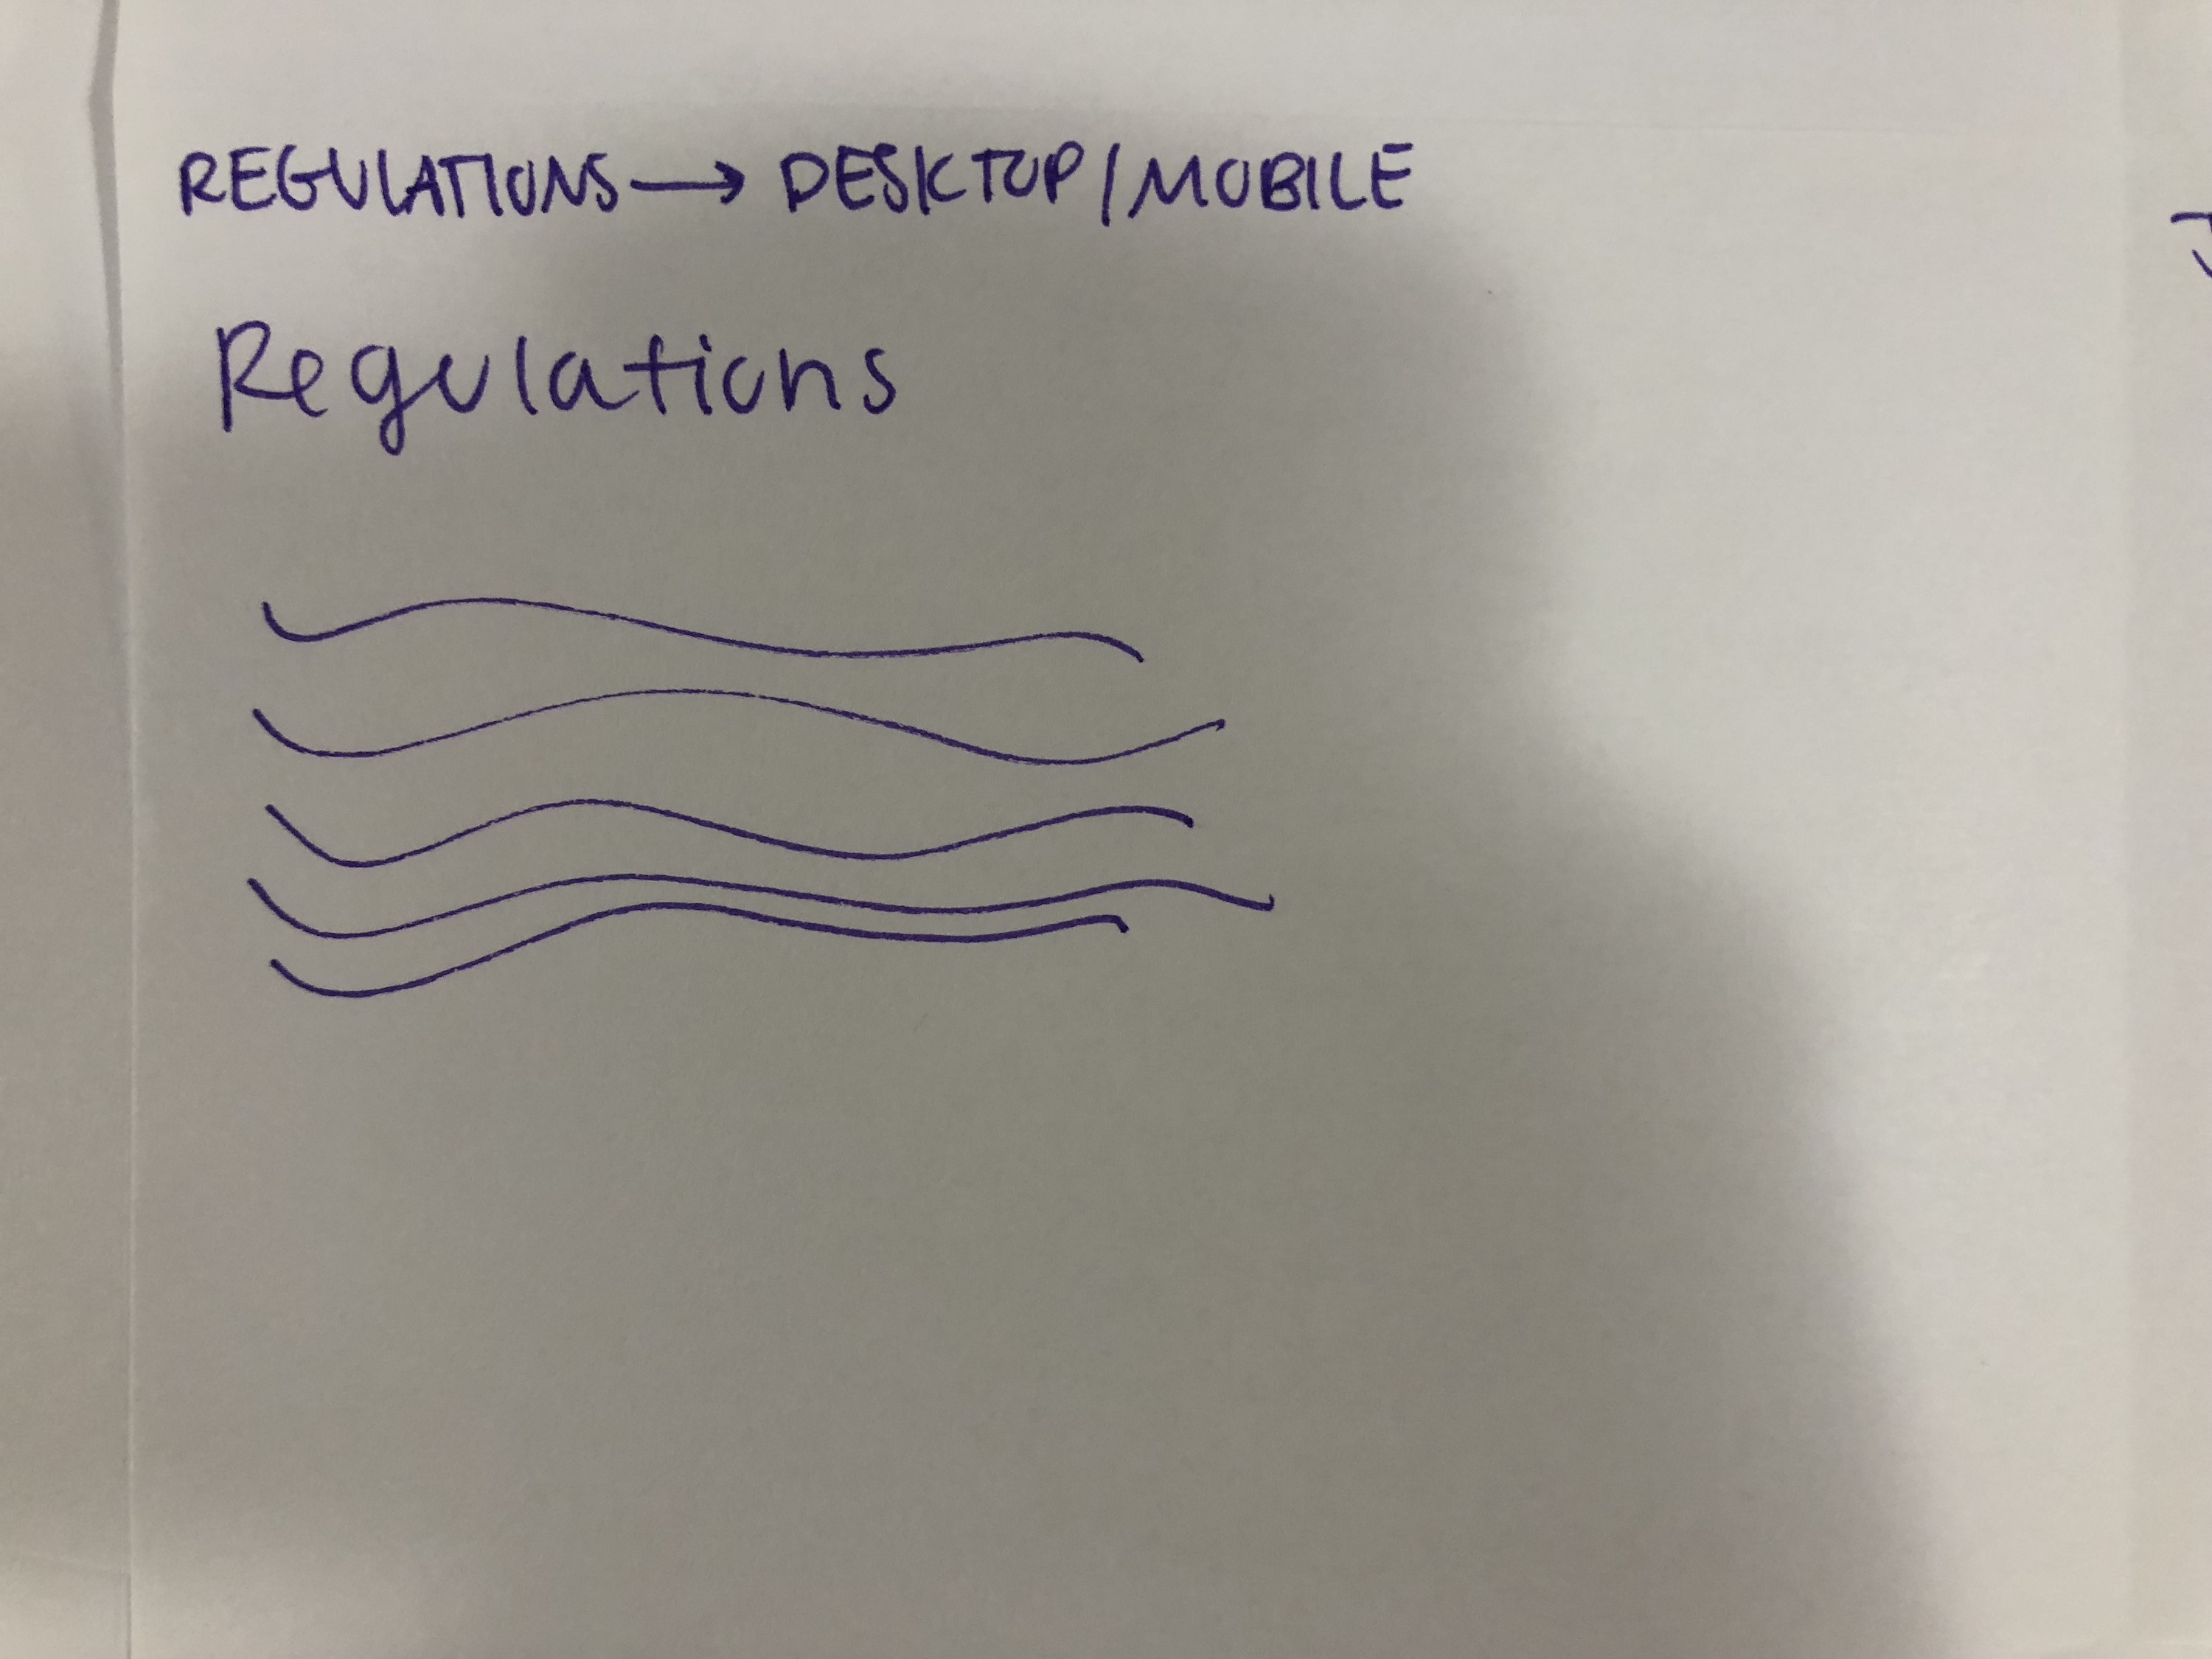 REGULATIONS → DESKTOP/MOBILE
Regulations